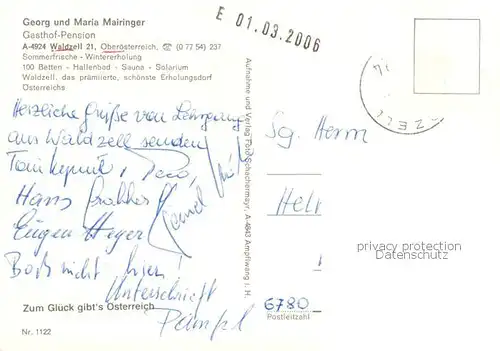 Georg und Maria Mairinger
Gasthof-Pension
A-4924 Waldzell 21, Oberösterreich, ☎ (0 77 54) 237
Sommerfrische - Wintererholung
100 Betten - Hallenbad - Sauna - Solarium
Waldzell, das prämierte, schönste Erholungsdorf
Österreichs
E 01.03.2006
Herzliche Grüße von Lehrgang
aus Waldzell senden
Hans
Eugen Heger
nicht hier!
Unterschrift
Zum Glück gibt's Österreich
Nr. 1122
Aufnahme und Verlag Foto Schachermayr, A-4843 Ampflwang i. H.
ZELL
Sg. Herrn
Helr
privacy protection
Datenschutz
6780
Postleitzahl